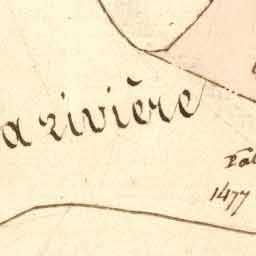 a rivière
1477